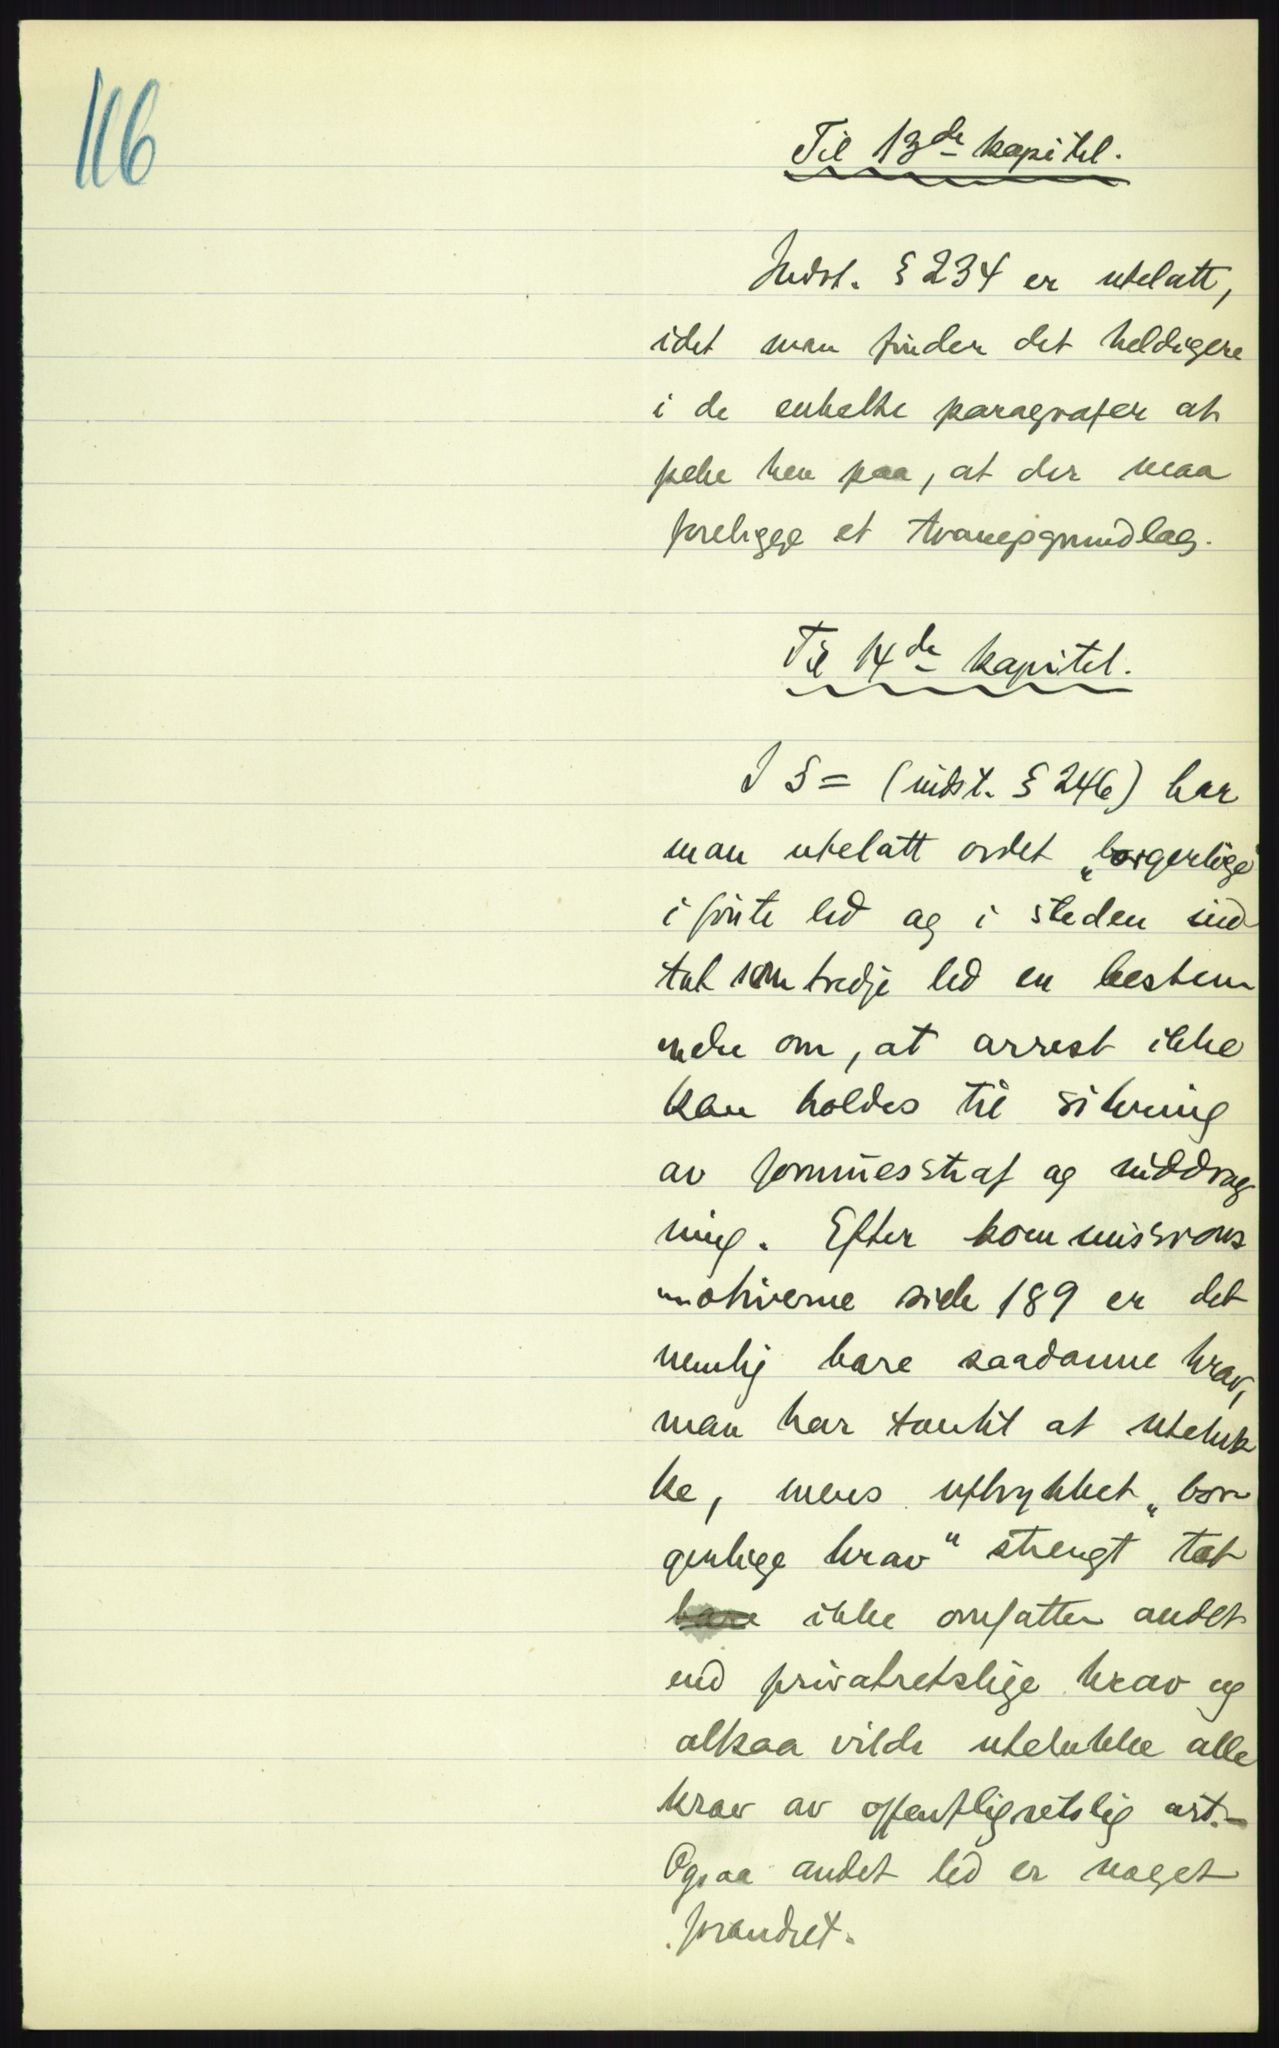 116
Til 13de kapitel.
Indst. § 234 er utelatt,
idet man finder det heldigere
i de enkelte paragrafer at
peke hen paa, at der maa
foreligge et tvangsgrundlag.
Til 14de kapitel.
I § = (indst. § 246) har
man utelatt ordet „borgerlige"
i første led og i steden ind
tat som tredje led en bestem
melse om, at arrest ikke
kan holdes til sikring
av formuesstraf og inddrag
ning. Efter kommissions
motiverne side 189 er det
nemlig bare saadanne krav,
man har tænkt at uteluk
ke, mens uttrykket „bor
gerlige krav" strengt tat
bare ikke omfatter andet
end privatretslige krav og
altsaa vilde utelukke alle
krav av offentligretslig art.-
Ogsaa andet led er noget
forandret.